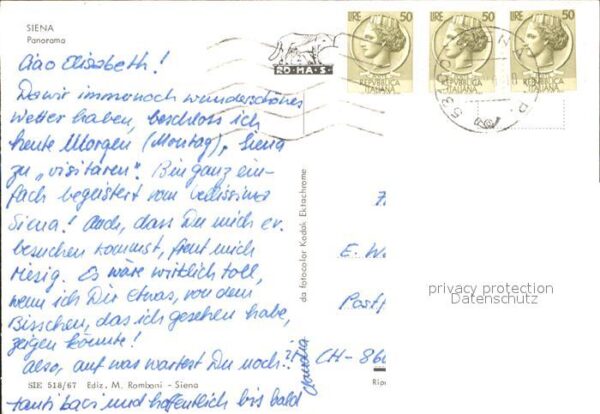 SIENA
Panorama
Ciao Elisabeth!
Da wir immernoch wunderschönes
Wetter haben, beschloss ich
heute Morgen (Montag), Siena
zu "visitaren". Bin ganz ein-
fach begeistert vom bellissima
Siena! Auch, dass Du mich
besuchen kommst, freut mich
riesig. Es wäre wirklich toll,
wenn ich Dir etwas, von dem
Bisschen, das ich gesehen habe,
zeigen könnte!
Also, auf was wartest Du noch?!
SIE 518/67 Ediz. M. Romboni - Siena
tanti baci und hoffentlich bis bald
Claudia
da fotocolor Kodak Ektachrome
RO·MA·S·
LIRE 50
REPUBBLICA
ITALIANA
LIRE 50
REPUBBLICA
ITALIANA
LIRE 50
REPUBBLICA
ITALIANA
E. W
privacy protection
Datenschutz
Postf
CH-860
Ripr